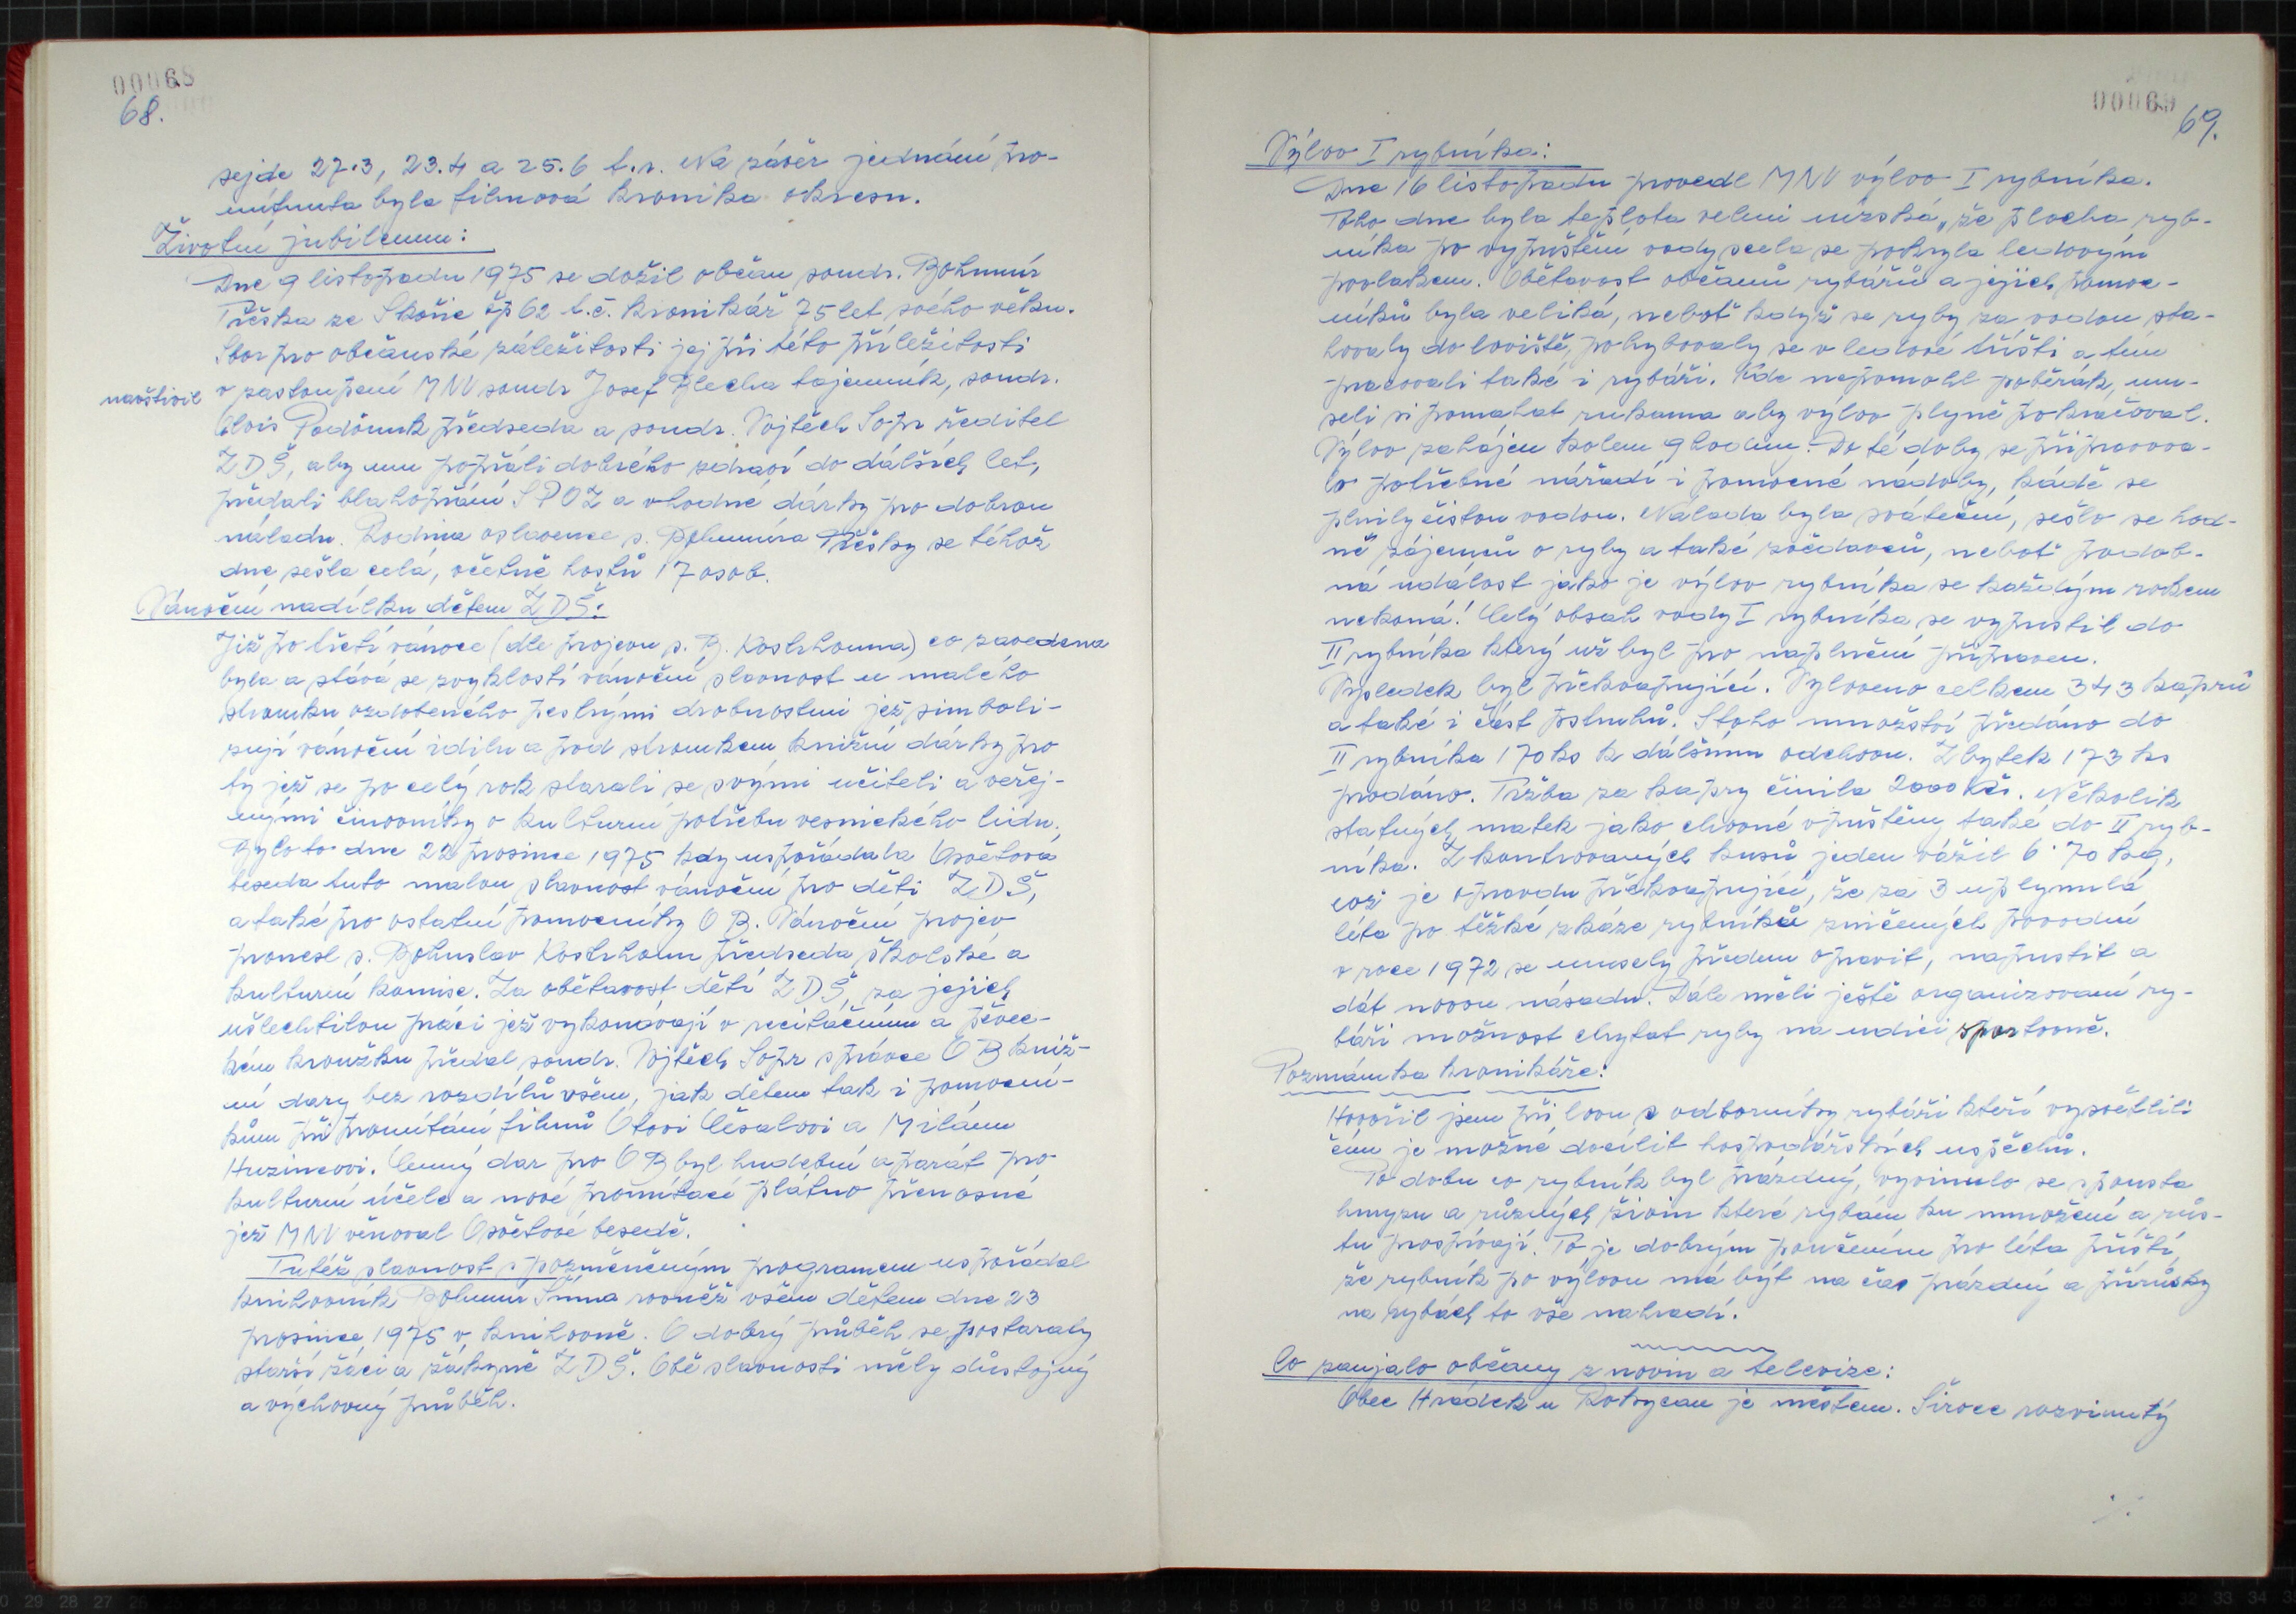 00068
68.
sejde 27.3, 23.4 a 25.6 t.r. Na závěr jednání pro-
mítnuta byla filmová kronika okresu.
Životní jubileum:
Dne 9 listopadu 1975 se dožil občan soudr. Bohumír
Tříska ze Skořic čp 62 t.č. kronikář 75 let svého věku.
Sbor pro občanské záležitosti jej při této příležitosti
navštívil v zastoupení MNV soudr Josef Plecha tajemník, soudr.
Alois předseda a soudr. Vojtěch Sopr ředitel
ZDŠ, aby mu popřáli dobrého zdraví do dálších let,
předali blahopřání SPOZ a vhodné dárky pro dobrou
náladu. Rodina oslavence s. Bohumíra Třísky se téhož
dne sešla celá, včetně hostů 17 osob.
Vánoční nadílku dětem ZDŠ:
Již po třetí vánoce (dle projevu s. B. Kostrhouna) co zavedena
byla a stává se zvyklostí vánoční slavnost u malého
stromku ozdobeného pestrými drobnostmi jež simboli-
zují vánoční idilu a pod stromkem knižní dárky pro
ty jež se po celý rok starali se svými učiteli a veřej-
nými činovníky o kulturní potřebu vesnického lidu.
Bylo to dne 22 prosince 1975 kdy uspořádala Osvětová
beseda tuto malou slavnost vánoční pro děti ZDŠ,
a také pro ostatní pomocníky OB. Vánoční projev
pronesl s. Bohuslav Kostrhoun předseda školské a
kulturní komise. Za obětavost dětí ZDŠ, za jejich
ušlechtilou práci jež vykonávají v recitačním a pěvec-
kém kroužku předal soudr. Vojtěch Sopr správce OB kniž-
ní dary bez rozdílů všem, jak dětem tak i pomocní-
kům při promítání filmů Otovi Česalovi a Milánu
Huzincovi. Cenný dar pro OB byl hudební aparát pro
kulturní účele a nové promítací plátno přenosné
jež MNV věnoval Osvětové besedě.
Tutéž slavnost s pozměněným programem uspořádal
knihovník Bohumír Šíma rovněž všem dětem dne 23
prosince 1975 v knihovně. O dobrý průběh se postaraly
starší žáci a žákyně ZDŠ. Obě slavnosti měly důstojný
a výchovný průběh.
00069
69.
Výlov I rybníka:
Dne 16 listopadu provedl MNV výlov I rybníka.
Toho dne byla teplota velmi nízská, že plocha ryb-
níka po vypuštění vody zcela se pokryla ledovým
povlakem. Obětavost občanů rybářů a jejich pomoc-
níků byla veliká, neboť když se ryby za vodou sta-
hovaly do loviště, pohybovaly se v ledové tříšti a tím
pracovali také i rybáři. Kde nepomohl poběrák, mu-
seli si pomahat rukama aby výlov plyně pokračoval.
Výlov zahájen kolem 9 hodiny. Do té doby se připravova-
lo potřebné nářadí i pomocné nádoby, kádě se
plnily čistou vodou. Nálada byla sváteční, sešlo se hod-
ně zájemců o ryby a také zvědavců, neboť podob-
ná událost jako je výlov rybníka se každým rokem
nekoná! Celý obsah vody I rybníka se vypustil do
II rybníka který už byl pro naplnění připraven.
Výsledek byl překvapující. Vyloveno celkem 343 kaprů
a také i část pstruhů. Z toho množství předáno do
II rybníka 170 ks k dálšímu odchovu. Zbytek 173 ks
prodáno. Tržba za kapry činila 2000 Kčs. Několik
statných matek jako chovné vpuštěny také do II ryb-
níka. Z kontrovaných kusů jeden vážil 6˙70 kg,
což je opravdu překvapující, že za 3 uplynulá
léta po těžké zkáze rybníků zničených povodní
v roce 1972 se musely předem opravit, napustit a
dát novou násadu. Dále měli ještě organizovaní ry-
báři možnost chytat ryby na udici sportovně.
Poznámka kronikáře:
Hovořil jsem při lovu s odborníky rybáři kteří vysvětlili
čím je možné docílit hospodářských uspěchů.
Po dobu co rybník byl prázdný, vyvinulo se spousta
hmyzu a různých živin které rybám ku množení a růs-
tu prospívají. To je dobrým poučením pro léta příští,
že rybník po výlovu má být na čas prázdný a přírůsky
na rybách to vše nahradí.
Co zaujalo občany z novin a televize:
Obec Hrádek u Rokycan je městem. Široce rozvinutý